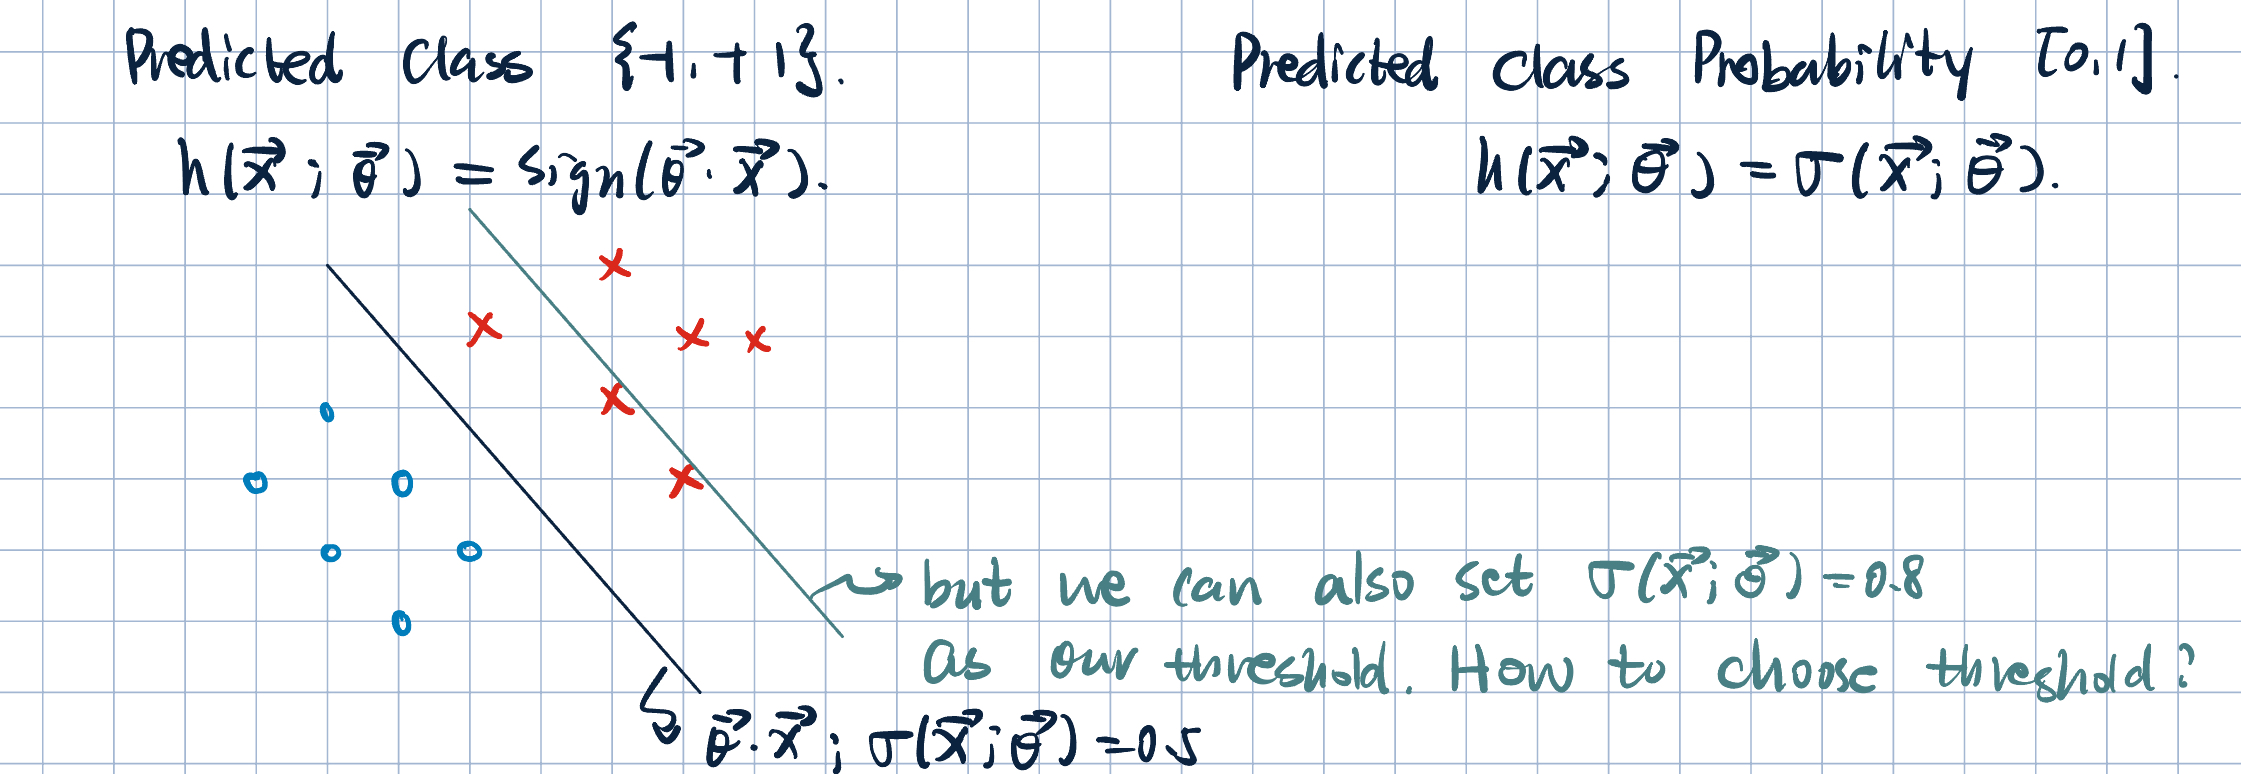 Predicted Class {-1, +1}.
h(x⃗; θ⃗) = sign(θ⃗·x⃗).
Predicted class Probability [0,1].
h(x⃗; θ⃗) = σ(x⃗; θ⃗).
but we can also set σ(x⃗; θ⃗) = 0.8
as our threshold. How to choose threshold?
θ⃗·x⃗; σ(x⃗; θ⃗) = 0.5